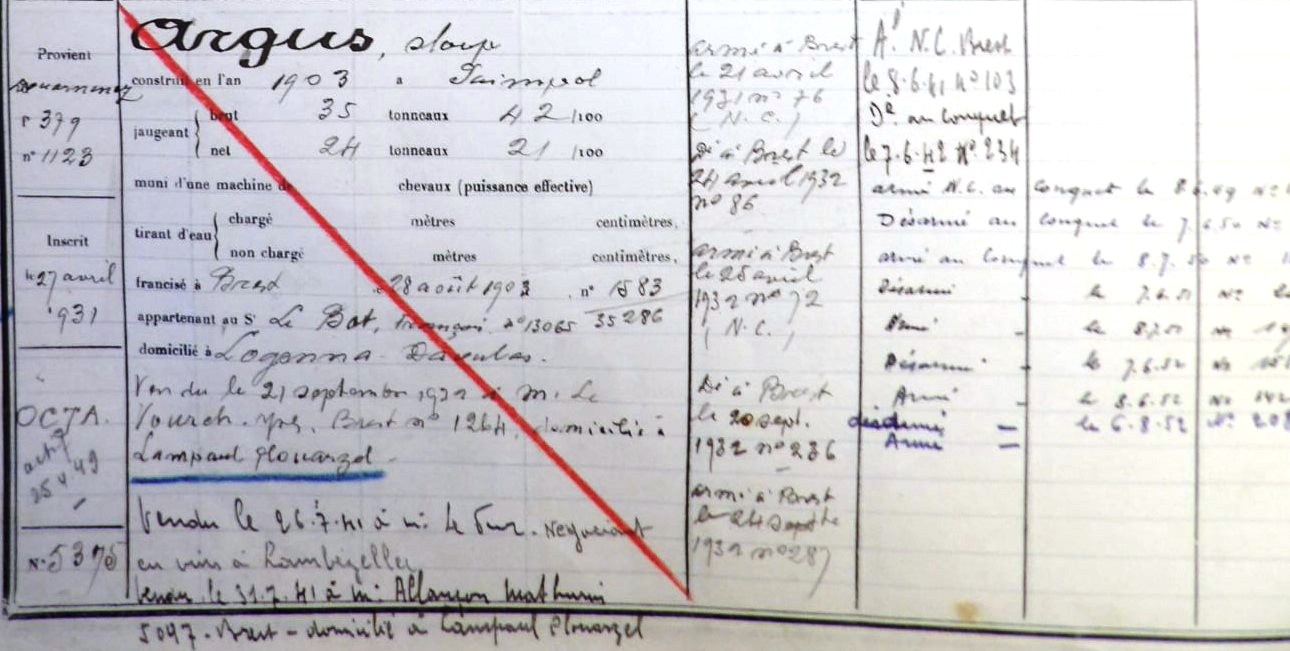 Provient
Douarnenez
f° 379
n° 1123
Inscrit
le 27 avril
1931
OCTA.
25.4.49
N° 5375
Argus, sloop
construit en l'an 1903 a Paimpol
jaugeant
brut 35 tonneaux 42 /100
net 24 tonneaux 21 /100
muni d'une machine de chevaux (puissance effective)
tirant d'eau
chargé mètres centimètres,
non chargé mètres centimètres,
francisé à Brest le 28 août 1903 n° 1583
appartenant au Sr Le Bot, François, n° 13065 35286
domicilié à Logonna-Daoulas.
Vendu le 21 septembre 1932 à M. Le
Vourch. Yves. Brest n° 1264, domicilié à
Lampaul Plouarzel
Vendu le 26.7.41 à m. Le Fur. Negociant
en vins à Lambezellec
Vendu le 31.7.41 à m. Allançon Mathurin
5097. Brest - domicilié à Lampaul Plouarzel
armé à Brest
le 21 avril
1931 n° 76
(N.C.)
Dé à Brest le
24 avril 1932
n° 86
armé à Brest
le 25 avril
1932 n° 72
(N.C.)
Dé à Brest
le 20 sept.
1932 n° 236
armé à Brest
le 24 septbre
1932 n° 287
Aé N.C. Brest
le 8.6.41 n° 103
Dé au Conquet
le 7.6.42 N° 234
armé N.C. au Conquet le 8.6.49 N°
Désarmé au Conquet le 7.6.50 N°
armé au Conquet le 8.7.50 N°
Désarmé - le 7.6.51 N°
Armé - le
Désarmé - le 7.6.52 N°
Armé - le 8.6.52 N° 142
désarmé - le 6.8.52 N° 208
Armé =